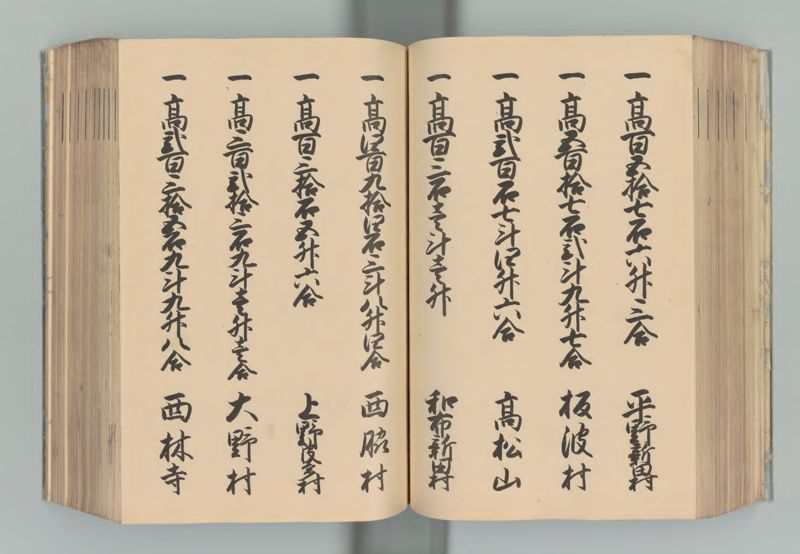 一 高百五拾七石六升三合 平野新田村
一 高五百拾七石弐斗九升七合 板波村
一 高弐百石七斗四升六合 高松山
一 高百三石壱斗壱升 和布新田村
一 高四百九拾四石三斗八升四合 西脇村
一 高百三拾石五升六合 上野段
一 高三百弐拾三石九斗壱升壱合 大野村
一 高弐百三拾五石九斗九升八合 西林寺